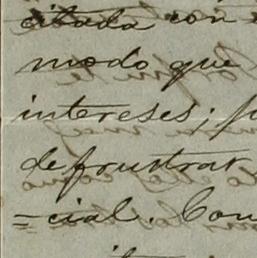 citada con
modo que
intereses;
de frustrar
=cial. Con